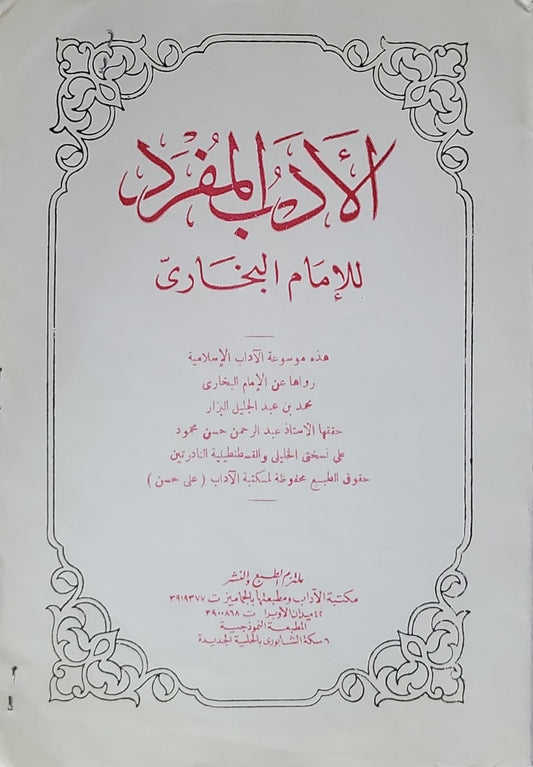 الأَدَبُ المُفْرَد
للإمَام البخَارىّ
هذه موسوعة الآداب الإسلامية
رواها عن الإمام البخارى
محمد بن عبد الجليل البزار
حققها الاستاذ عبد الرحمن حسن محمود
على نسختى الخليلى والقسطنطينية النادرتين
حقوق الطبع محفوظة لمكتبة الآداب ( على حسن )
ملتزم الطبع والنشر
مكتبة الآداب ومطبعتها بالجماميز ت ٣٩١٩٣٧٧
٤٢ ميدان الأوبرا ت ٣٩٠٠٨٦٨
المطبعة النموذجية
٦ سكة الشابورى بالحلمية الجديدة